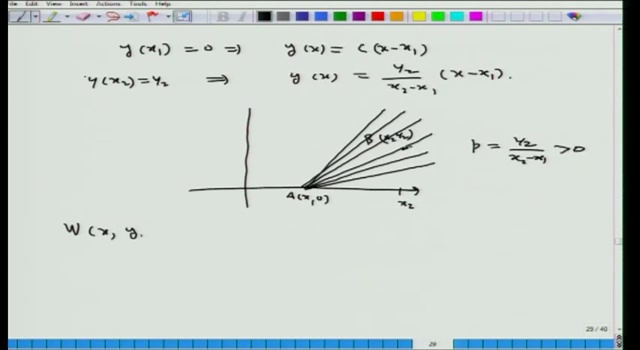 File Edit View Insert Actions Tools Help
y(x₁) = 0 ⇒ y(x) = C(x-x₁)
y(x₂) = y₂ ⇒ y(x) = y₂/(x₂-x₁) (x-x₁).
B(x₂,y₂)
p = y₂/(x₂-x₁) > 0
A(x₁,0)
x₂
W(x, y.
29 / 40
29